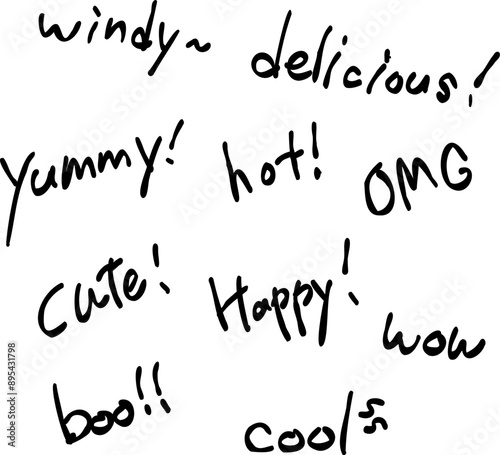 windy~
delicious!
yummy!
hot!
OMG
cute!
Happy!
wow
boo!!
cool
Adobe Stock | #895431798